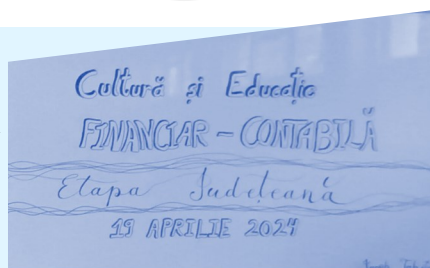 Cultură și Educație
FINANCIAR - CONTABILĂ
Etapa Județeană
19 APRILIE 2024